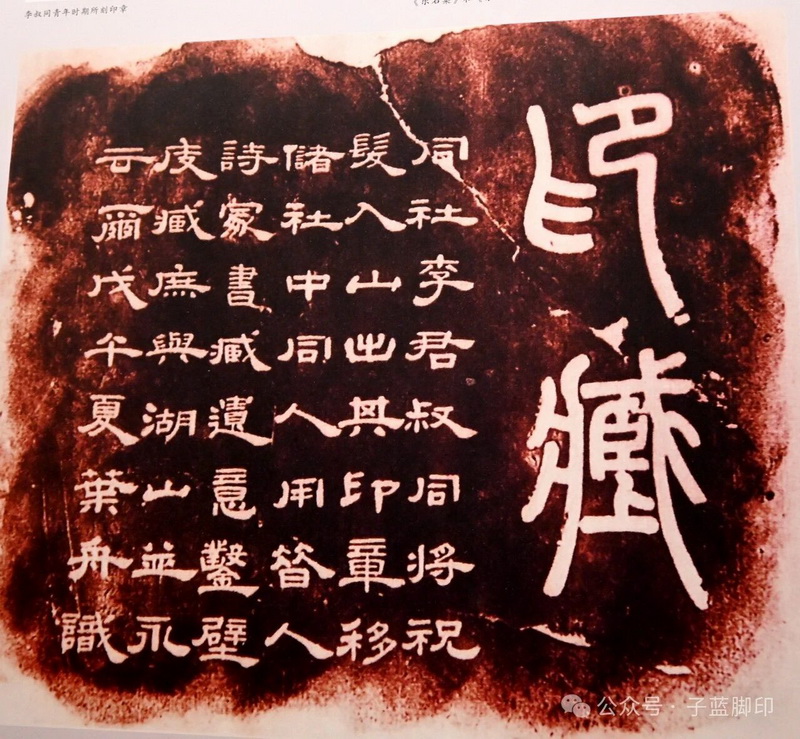 李叔同青年时期所刻印章
印藏
同社李君叔同將祝
髮入山出其印章移
儲社中同人用昔人
詩冢書藏遺意鑿壁
庋藏庶與湖山並永
云爾戊午夏葉舟識
公众号 · 子蓝脚印